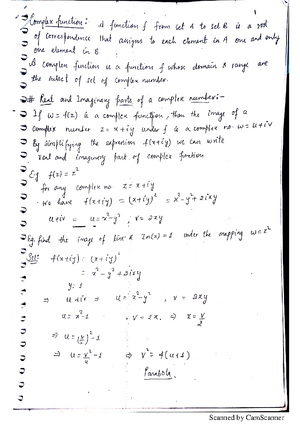 1
Complex function: A function f from set A to set B is a rule
of correspondence that assigns to each element in A one and only
one element in B.
A complex function is a function f whose domain & range are
the subset of set of complex number.
# Real and Imaginary parts of a complex number:-
If w = f(z) is a complex function, then the image of a
complex number z = x+iy under f is a complex no. w = u+iv
By simplifying the expression f(x+iy) we can write
real and imaginary part of complex function
E.g f(z) = z²
for any complex no z = x+iy
we have f(x+iy) = (x+iy)² = x²-y²+2ixy
u+iv = u = x²-y², v = 2xy
Eg. find the image of line & Im(z)=1 under the mapping w=z²
Sol: f(x+iy) = (x+iy)²
= x²-y²+2ixy
y=1
⇒ u+iv = u = x²-y², v = 2xy
u = x²-1, v = 2x. ⇒ x = v/2
⇒ u = (v/2)²-1
⇒ u = v²/4 -1 ⇒ v² = 4(u+1)
Parabola
Scanned by CamScanner